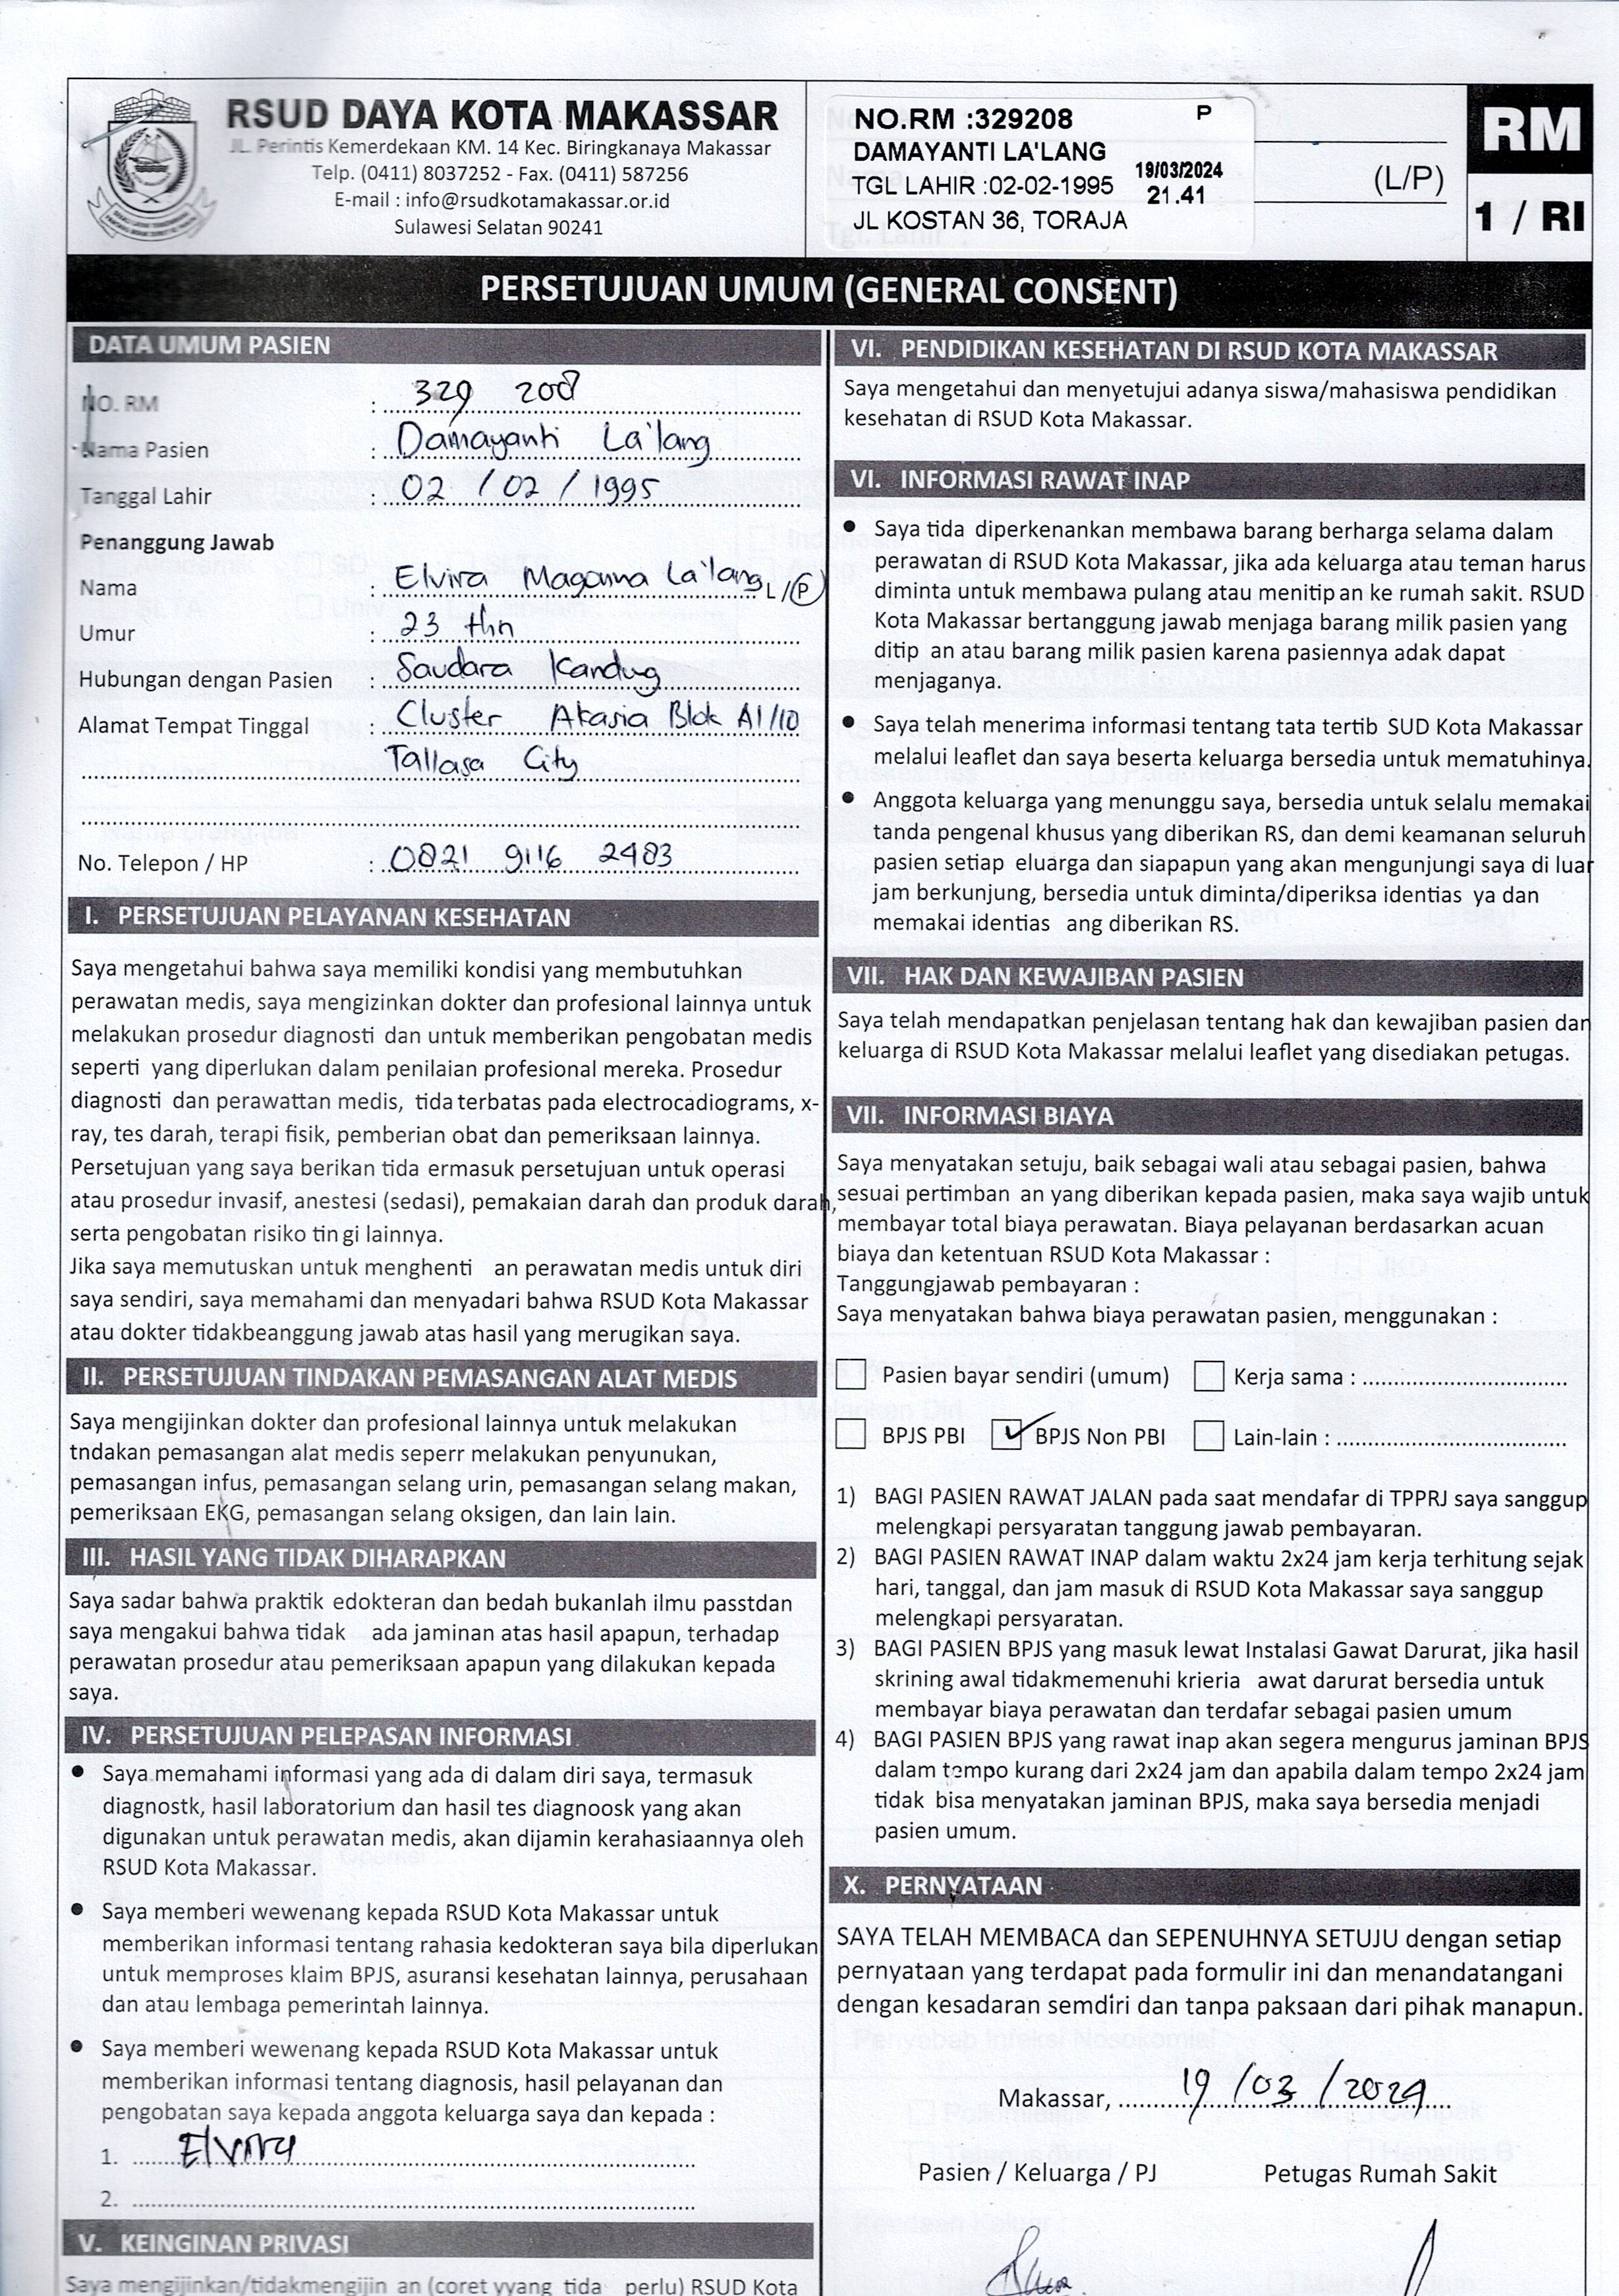 RSUD DAYA KOTA MAKASSAR
JL. Perintis Kemerdekaan KM. 14 Kec. Biringkanaya Makassar
Telp. (0411) 8037252 - Fax. (0411) 587256
E-mail : info@rsudkotamakassar.or.id
Sulawesi Selatan 90241
NO.RM :329208 P
DAMAYANTI LA'LANG
TGL LAHIR :02-02-1995 19/03/2024 21.41
JL KOSTAN 36, TORAJA
(L/P)
RM
1 / RI
PERSETUJUAN UMUM (GENERAL CONSENT)
DATA UMUM PASIEN
NO. RM : 329 208
Nama Pasien : Damayanti La'lang
Tanggal Lahir : 02 / 02 / 1995
Penanggung Jawab
Nama : Elvira Maganna La'lang L/P
Umur : 23 thn
Hubungan dengan Pasien : Saudara Kandug
Alamat Tempat Tinggal : Cluster Akasia Blok A1/10
Tallasa City
No. Telepon / HP : 0821 9116 2483
I. PERSETUJUAN PELAYANAN KESEHATAN
Saya mengetahui bahwa saya memiliki kondisi yang membutuhkan
perawatan medis, saya mengizinkan dokter dan profesional lainnya untuk
melakukan prosedur diagnosti dan untuk memberikan pengobatan medis
seperti yang diperlukan dalam penilaian profesional mereka. Prosedur
diagnosti dan perawattan medis, tida terbatas pada electrocadiograms, x-
ray, tes darah, terapi fisik, pemberian obat dan pemeriksaan lainnya.
Persetujuan yang saya berikan tida ermasuk persetujuan untuk operasi
atau prosedur invasif, anestesi (sedasi), pemakaian darah dan produk darah,
serta pengobatan risiko tin gi lainnya.
Jika saya memutuskan untuk menghenti an perawatan medis untuk diri
saya sendiri, saya memahami dan menyadari bahwa RSUD Kota Makassar
atau dokter tidakbeanggung jawab atas hasil yang merugikan saya.
II. PERSETUJUAN TINDAKAN PEMASANGAN ALAT MEDIS
Saya mengijinkan dokter dan profesional lainnya untuk melakukan
tndakan pemasangan alat medis seperr melakukan penyunukan,
pemasangan infus, pemasangan selang urin, pemasangan selang makan,
pemeriksaan EKG, pemasangan selang oksigen, dan lain lain.
III. HASIL YANG TIDAK DIHARAPKAN
Saya sadar bahwa praktik edokteran dan bedah bukanlah ilmu passtdan
saya mengakui bahwa tidak ada jaminan atas hasil apapun, terhadap
perawatan prosedur atau pemeriksaan apapun yang dilakukan kepada
saya.
IV. PERSETUJUAN PELEPASAN INFORMASI
● Saya memahami informasi yang ada di dalam diri saya, termasuk
diagnostk, hasil laboratorium dan hasil tes diagnoosk yang akan
digunakan untuk perawatan medis, akan dijamin kerahasiaannya oleh
RSUD Kota Makassar.
● Saya memberi wewenang kepada RSUD Kota Makassar untuk
memberikan informasi tentang rahasia kedokteran saya bila diperlukan
untuk memproses klaim BPJS, asuransi kesehatan lainnya, perusahaan
dan atau lembaga pemerintah lainnya.
● Saya memberi wewenang kepada RSUD Kota Makassar untuk
memberikan informasi tentang diagnosis, hasil pelayanan dan
pengobatan saya kepada anggota keluarga saya dan kepada :
1. Elvira
2.
V. KEINGINAN PRIVASI
Saya mengijinkan/tidakmengijin an (coret yyang tida perlu) RSUD Kota
VI. PENDIDIKAN KESEHATAN DI RSUD KOTA MAKASSAR
Saya mengetahui dan menyetujui adanya siswa/mahasiswa pendidikan
kesehatan di RSUD Kota Makassar.
VI. INFORMASI RAWAT INAP
● Saya tida diperkenankan membawa barang berharga selama dalam
perawatan di RSUD Kota Makassar, jika ada keluarga atau teman harus
diminta untuk membawa pulang atau menitip an ke rumah sakit. RSUD
Kota Makassar bertanggung jawab menjaga barang milik pasien yang
ditip an atau barang milik pasien karena pasiennya adak dapat
menjaganya.
● Saya telah menerima informasi tentang tata tertib SUD Kota Makassar
melalui leaflet dan saya beserta keluarga bersedia untuk mematuhinya.
● Anggota keluarga yang menunggu saya, bersedia untuk selalu memakai
tanda pengenal khusus yang diberikan RS, dan demi keamanan seluruh
pasien setiap eluarga dan siapapun yang akan mengunjungi saya di luar
jam berkunjung, bersedia untuk diminta/diperiksa identias ya dan
memakai identias ang diberikan RS.
VII. HAK DAN KEWAJIBAN PASIEN
Saya telah mendapatkan penjelasan tentang hak dan kewajiban pasien dan
keluarga di RSUD Kota Makassar melalui leaflet yang disediakan petugas.
VII. INFORMASI BIAYA
Saya menyatakan setuju, baik sebagai wali atau sebagai pasien, bahwa
sesuai pertimban an yang diberikan kepada pasien, maka saya wajib untuk
membayar total biaya perawatan. Biaya pelayanan berdasarkan acuan
biaya dan ketentuan RSUD Kota Makassar :
Tanggungjawab pembayaran :
Saya menyatakan bahwa biaya perawatan pasien, menggunakan :
Pasien bayar sendiri (umum) Kerja sama :
BPJS PBI ✓ BPJS Non PBI Lain-lain :
1) BAGI PASIEN RAWAT JALAN pada saat mendafar di TPPRJ saya sanggup
melengkapi persyaratan tanggung jawab pembayaran.
2) BAGI PASIEN RAWAT INAP dalam waktu 2x24 jam kerja terhitung sejak
hari, tanggal, dan jam masuk di RSUD Kota Makassar saya sanggup
melengkapi persyaratan.
3) BAGI PASIEN BPJS yang masuk lewat Instalasi Gawat Darurat, jika hasil
skrining awal tidakmemenuhi krieria awat darurat bersedia untuk
membayar biaya perawatan dan terdafar sebagai pasien umum
4) BAGI PASIEN BPJS yang rawat inap akan segera mengurus jaminan BPJS
dalam tempo kurang dari 2x24 jam dan apabila dalam tempo 2x24 jam
tidak bisa menyatakan jaminan BPJS, maka saya bersedia menjadi
pasien umum.
X. PERNYATAAN
SAYA TELAH MEMBACA dan SEPENUHNYA SETUJU dengan setiap
pernyataan yang terdapat pada formulir ini dan menandatangani
dengan kesadaran semdiri dan tanpa paksaan dari pihak manapun.
Makassar, 19 / 03 / 2024
Pasien / Keluarga / PJ Petugas Rumah Sakit